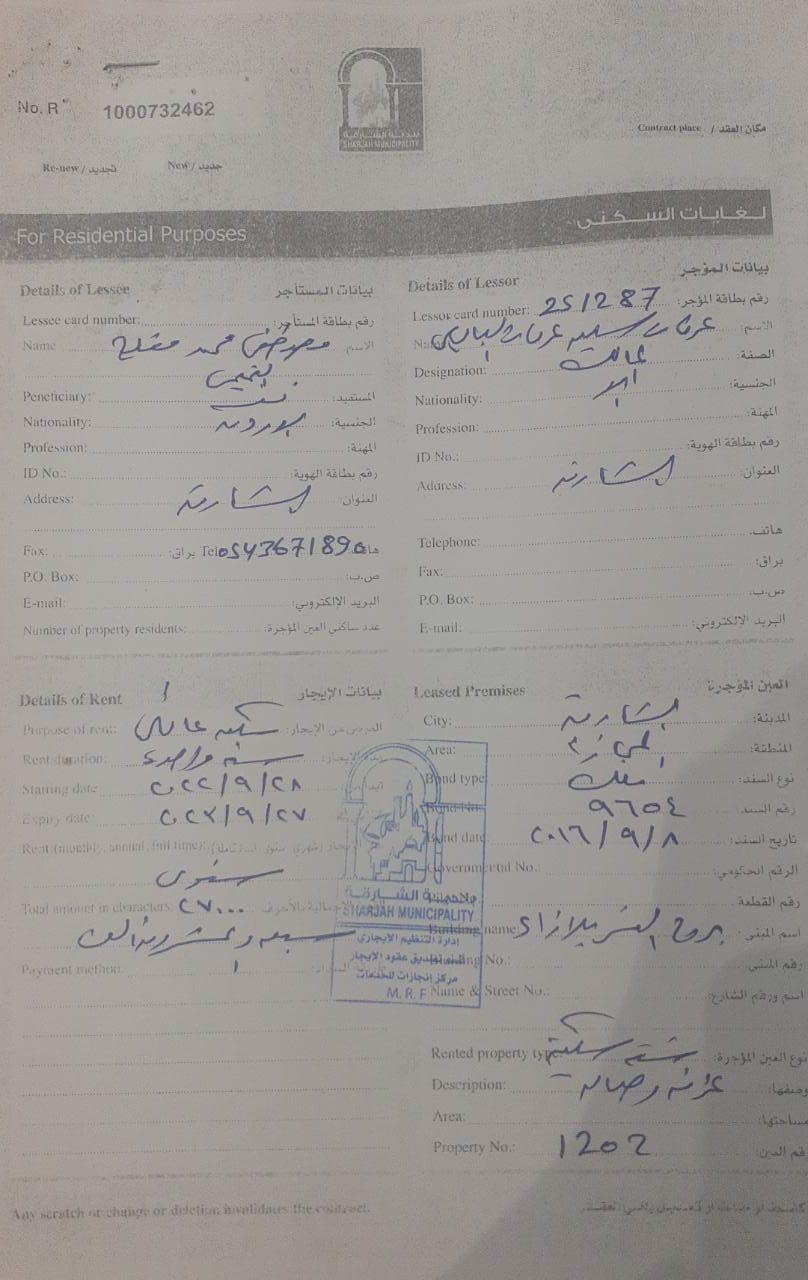 No. R 1000732462
بلدية الشارقة
SHARJAH MUNICIPALITY
Contract place / مكان العقد
Re-new / تجديد
New / جديد
For Residential Purposes
لغايات السكنى
Details of Lessee بيانات المستأجر
Lessee card number: رقم بطاقة المستأجر:
Name محمد مفلح الاسم:
Peneficiary: المستفيد:
Nationality: الجنسية:
Profession: المهنة:
ID No.: رقم بطاقة الهوية:
Address: الشارقة العنوان:
Fax: براق: Tel 0543671890 هاتف
P.O. Box: ص.ب:
E-mail: البريد الإلكتروني:
Number of property residents: عدد ساكني العين المؤجرة:
Details of Lessor بيانات المؤجر
Lessor card number: 251287 رقم بطاقة المؤجر:
الاسم:
Designation: مالك الصفة:
Nationality: الجنسية:
Profession: المهنة:
ID No.: رقم بطاقة الهوية:
Address: الشارقة العنوان:
Telephone: هاتف:
Fax: براق:
P.O. Box: ص.ب:
E-mail: البريد الالكتروني:
Details of Rent بيانات الإيجار
Purpose of rent: سكن عائلي الغرض من الإيجار:
Rent duration: سنة واحدة الإيجار:
Starting date ٢٠٢٢/٩/٢٨
Expiry date ٢٠٢٣/٩/٢٧
Rent (monthly, annual, full time)
سنوي
Total amount in characters ٢٧٠٠٠ بالأحرف
سبعة وعشرون ألف
Payment method:
Leased Premises العين المؤجرة
City: الشارقة المدينة:
Area: المجاز ٣ المنطقة:
Bond type ملك نوع السند:
Bond No. ٩٦٥٤ رقم السند:
Bond date ٢٠١٦/٩/٨ تاريخ السند:
Governmental No.: الرقم الحكومي:
رقم القطعة
Building name برج النسر بلازا اسم المبنى:
Building No.: رقم المبنى:
Name & Street No.: اسم ورقم الشارع:
Rented property type شقة سكنية نوع العين المؤجرة:
Description: غرفة وصالة وصفها:
Area: مساحتها:
Property No.: 1202 رقم العين:
بلدية الشارقة
SHARJAH MUNICIPALITY
إدارة التنظيم الايجاري
قسم تصديق عقود الإيجار
مركز إنجازات للخدمات
M. R. F
Any scratch or change or deletion invalidates the contract.